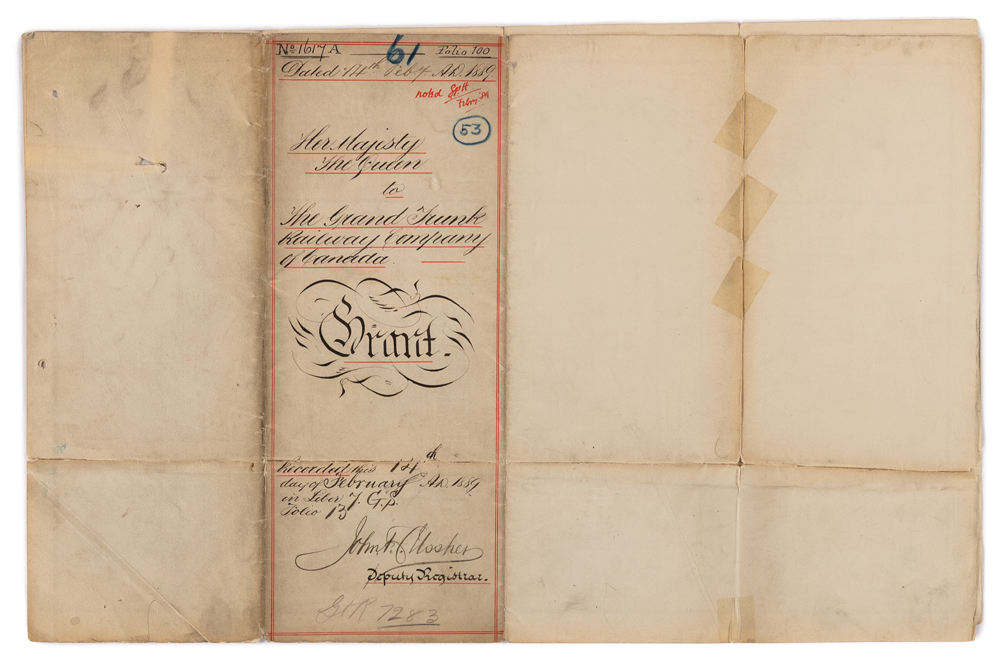 No 1617 A
61
Folio 100
Dated 14th Feby A.D. 1889.
noted
53
Her Majesty
The Queen
to
The Grand Trunk
Railway Company
of Canada.
Grant.
Recorded this 14th
day of February A.D. 1889
in Liber 7. G.S.
Folio 13
John F. C. Ussher
Deputy Registrar.
GTR 7283